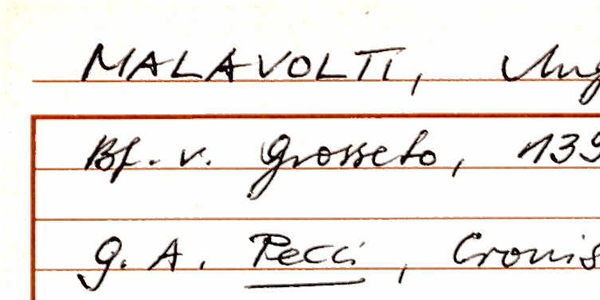 MALAVOLTI, Ung
Bf. v. Grosseto, 139
G. A. Pecci, Cronis